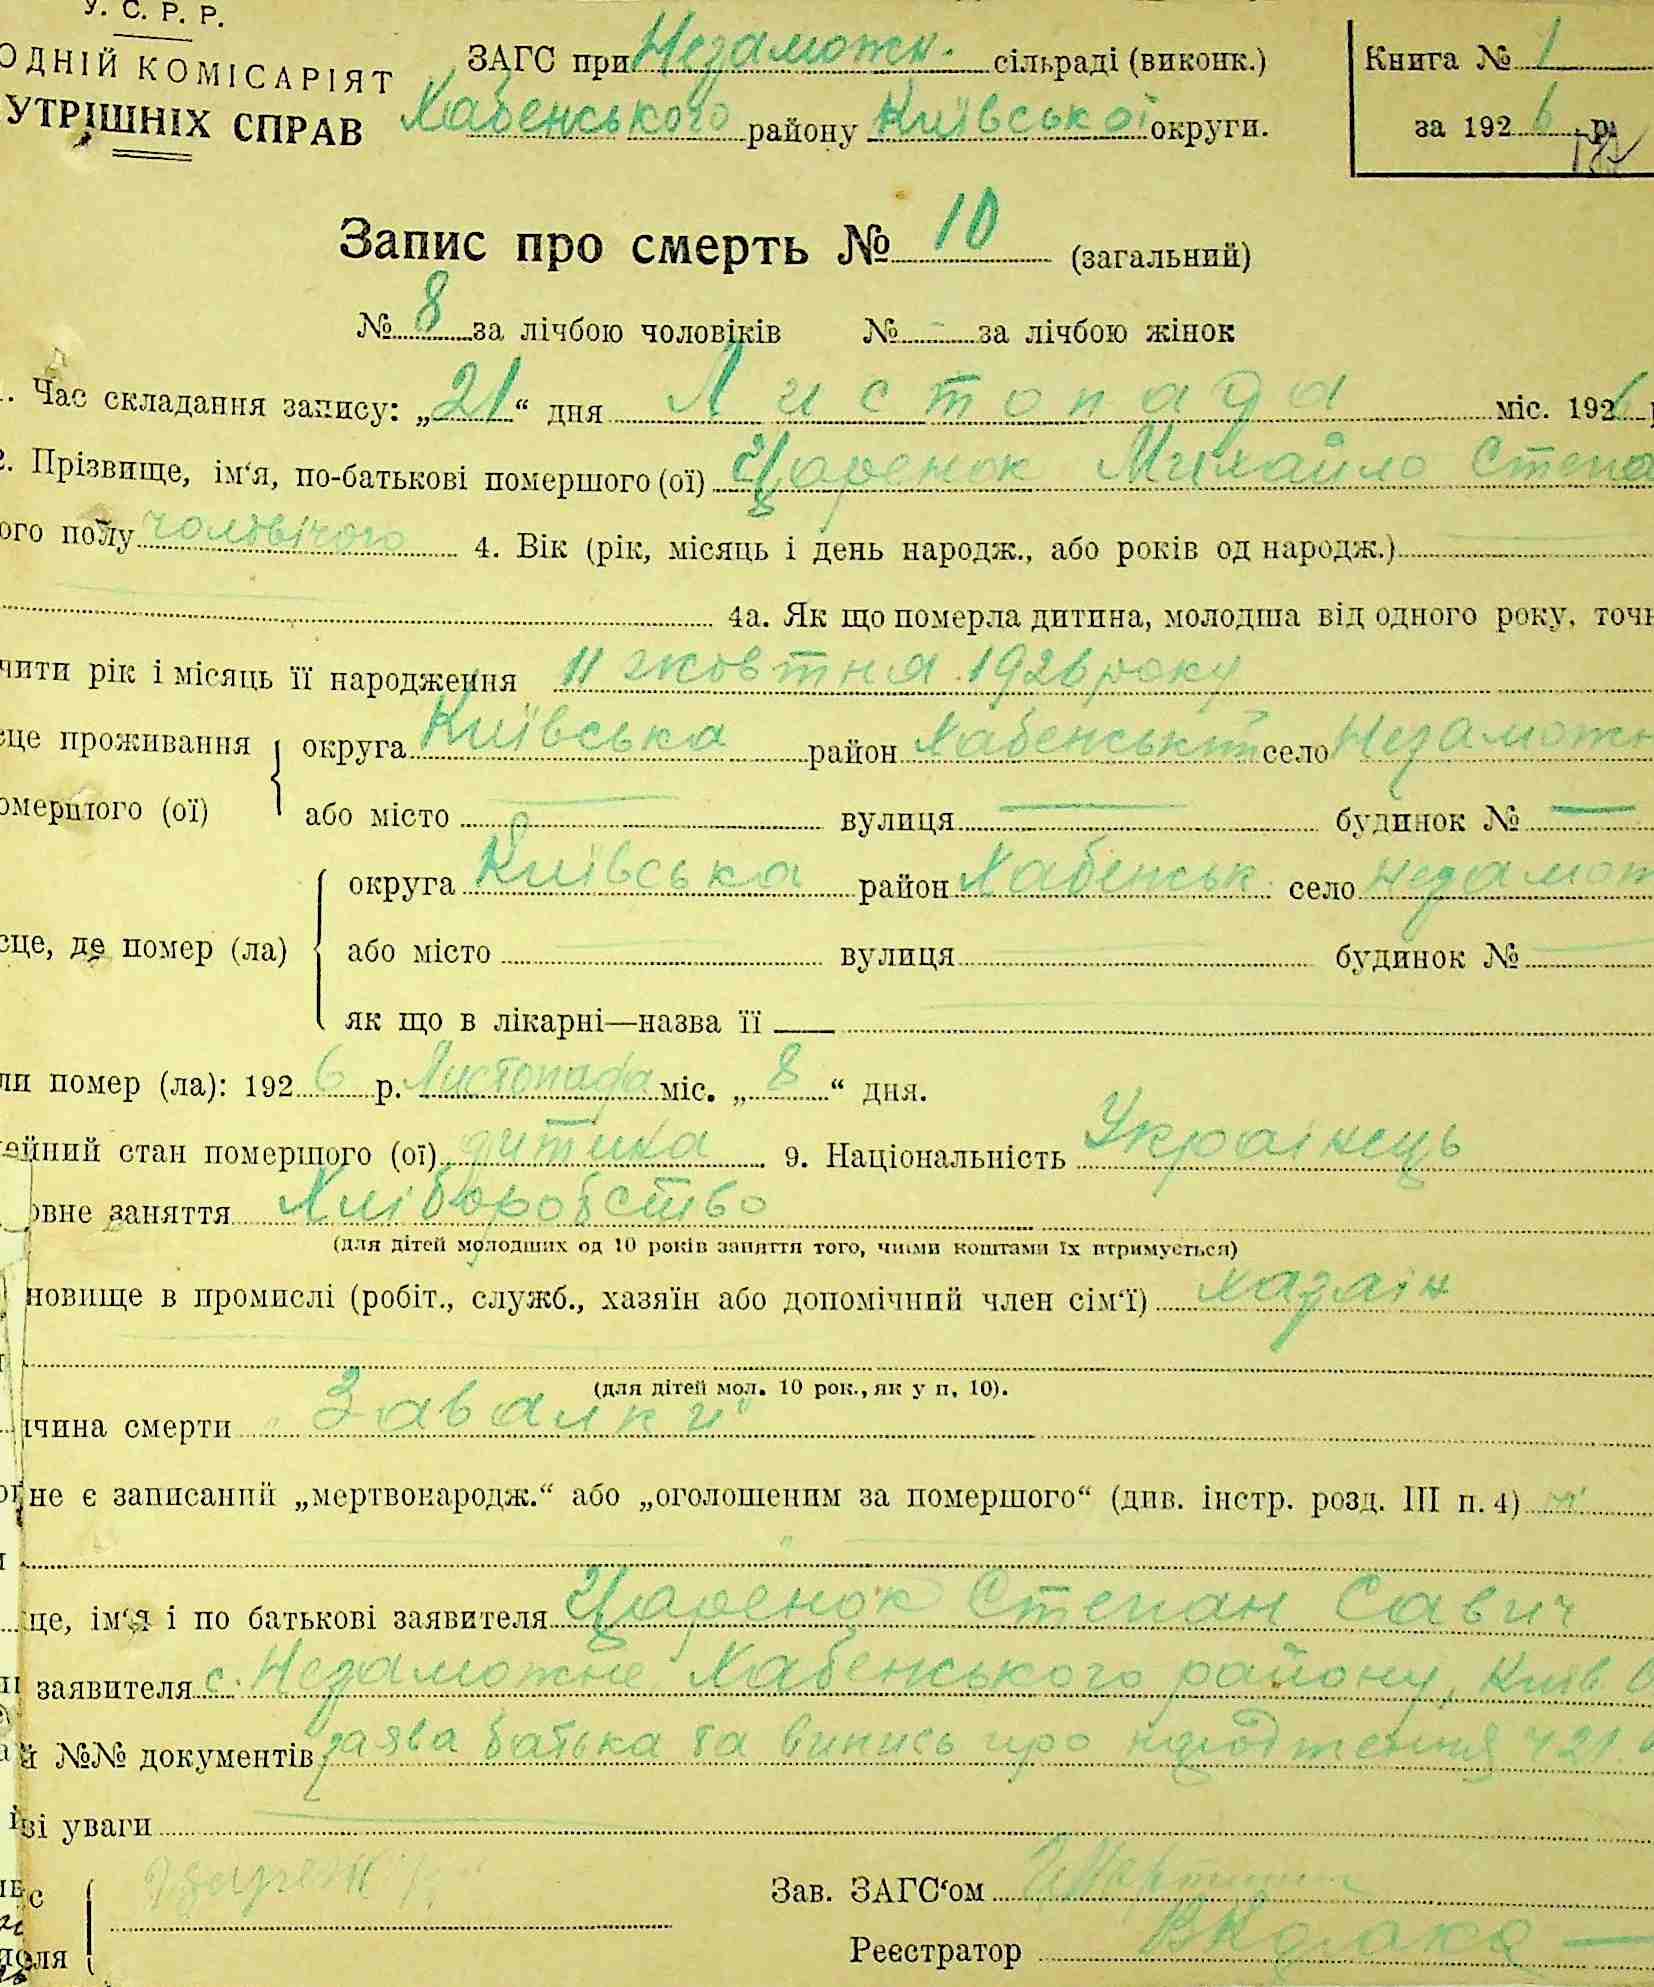 У. С. Р. Р.
ОДНІЙ КОМІСАРІЯТ
УТРІШНІХ СПРАВ
ЗАГС при Незаможн. сільраді (виконк.)
Хабенського району Київської округи.
Книга № 1
за 1926 р.
Запис про смерть № 10 (загальний)
№ 8 за лічбою чоловіків № - за лічбою жінок
1. Час складання запису: „21“ дня Листопада міс. 1926 р
2. Прізвище, ім‘я, по-батькові помершого (ої) Царенок Михайло Степа
ого полу чоловічого 4. Вік (рік, місяць і день народж., або років од народж.)
4а. Як що померла дитина, молодша від одного року, точн
чити рік і місяць її народження 11 жовтня 1926 року
сце проживання округа Київська район Хабенський село Незаможн
омершого (ої) або місто — вулиця — будинок № —
округа Київська район Хабенськ. село Незамот
сце, де помер (ла) або місто вулиця будинок №
як що в лікарні—назва її —
ли помер (ла): 1926 р. Листопада міс. „8“ дня.
ейний стан помершого (ої) дитина 9. Національність Українець
овне заняття Хліборобство
(для дітей молодших од 10 років заняття того, чиїми коштами їх втримується)
новище в промислі (робіт., служб., хазяїн або допомічний член сім‘ї) хазяін
(для дітей мол. 10 рок., як у п. 10).
ичина смерти „Завалки“
не є записаний „мертвонародж.“ або „оголошеним за помершого“ (див. інстр. розд. III п. 4)
це, ім‘я і по батькові заявителя Царенок Степан Савич
заявителя с. Незаможне Хабенського району, Київ. О
й №№ документів заява батька та випись про народження ч 21.
ві уваги
Зав. ЗАГС‘ом
Реєстратор